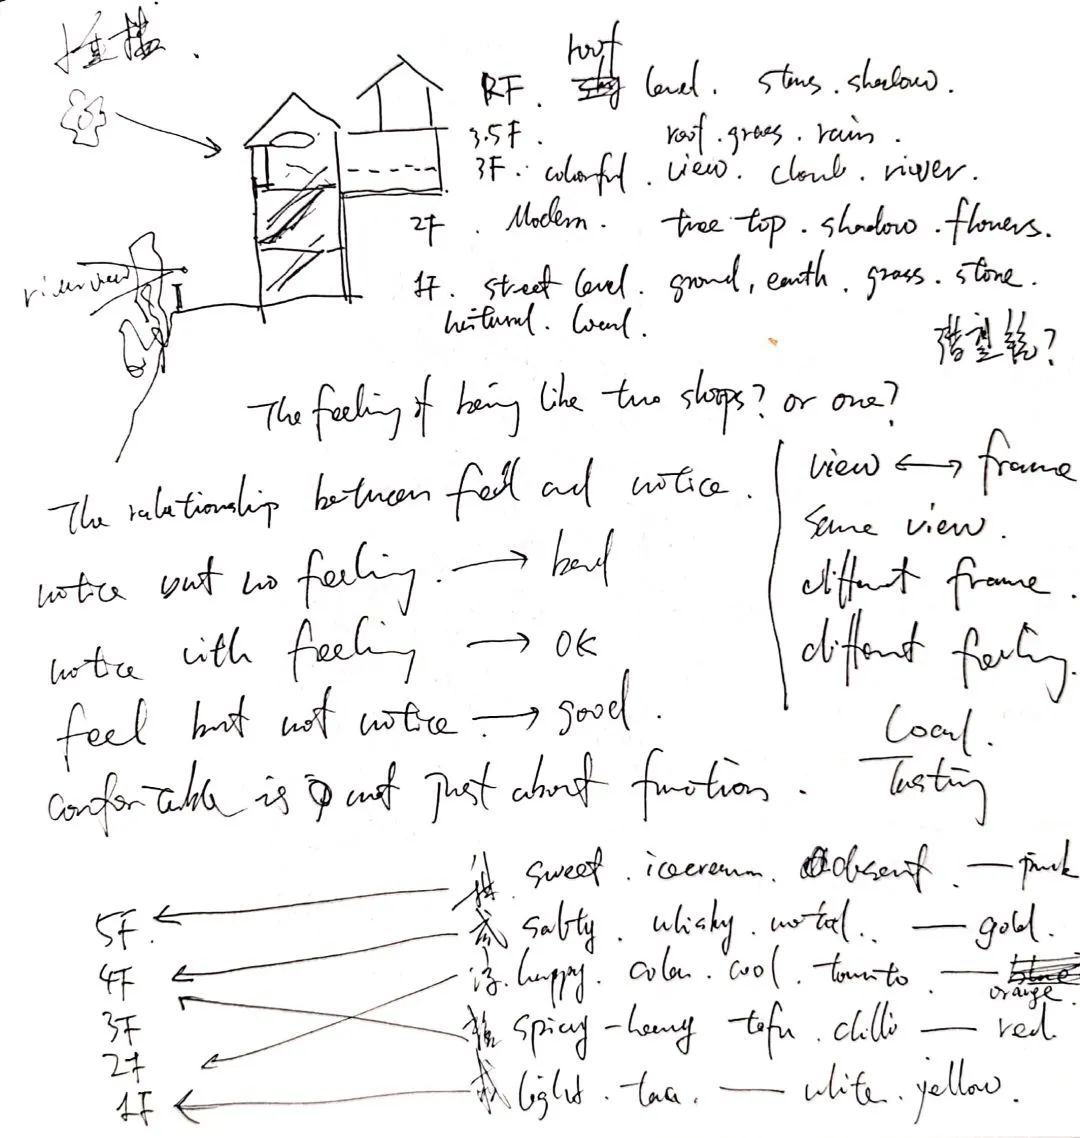 roof
RF. level. stars. shadow.
3.5F. roof. grass. rain.
3F. colorful. view. cloud. river.
2F. Modern. tree top. shadow. flowers.
riverview
1F. street level. ground, earth. grass. stone.
natural. local.
潜望镜?
The feeling of being like two shops? or one?
The relationship between feel and notice.
notice but no feeling. → bad
notice with feeling → OK
feel but not notice → good.
comfortable is not just about function.
view ↔ frame
same view.
different frame.
different feeling.
Local.
Tasting
sweet. icecream. — pink
salty. whisky. metal. — gold.
happy. color. cool. tomato. — orange.
spicy - heavy tofu. chilli — red
light. — white. yellow.
5F.
4F
3F
2F
1F